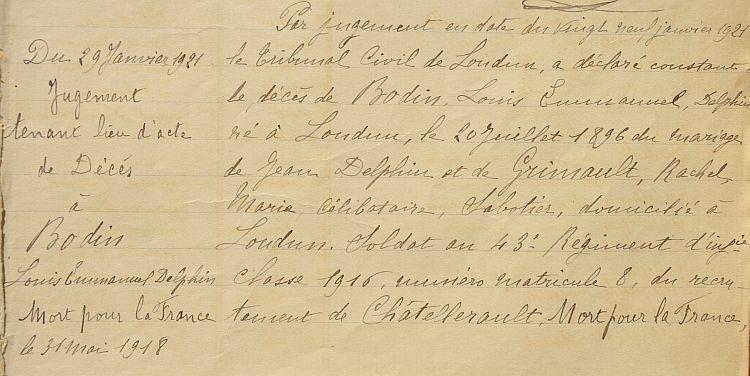 Du 29 Janvier 1921
Jugement
tenant lieu d'acte
de Décés
à
Bodin
Louis Emmanuel Delphin
Mort pour la France
le 31 mai 1918
Par jugement en date du vingt neuf janvier 1921
le Tribunal Civil de Loudun, a déclaré constant,
le décès de Bodin, Louis Emmanuel, Delphin
né à Loudun, le 20 Juillet 1896 du mariage
de Jean Delphin et de Grimault, Rachel,
Maria, célibataire, Sabotier, domicilié à
Loudun. Soldat au 43e Régiment d'infie
classe 1916, numéro matricule 8, du recru-
tement de Châtellerault, Mort pour la France,